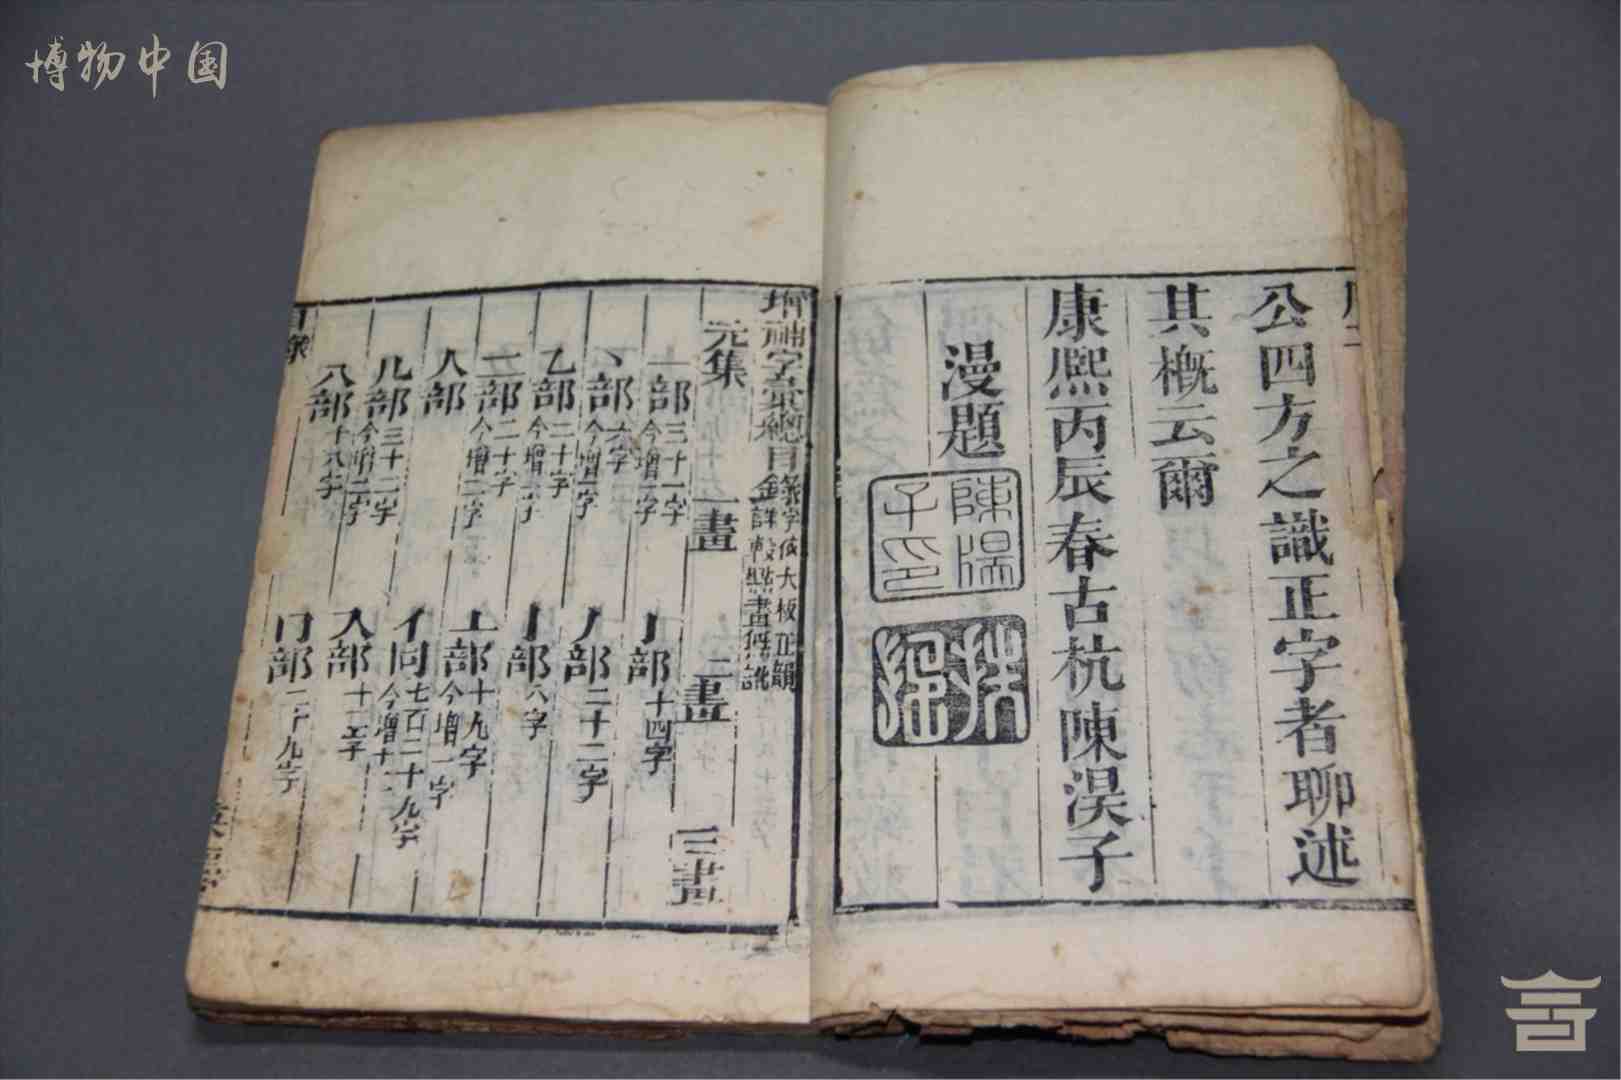 博物中国
公四方之識正字者聊述
其概云爾
康熙丙辰春古杭陳淏子
漫題
陳淏
子印
扶
增補字彙總目錄
元集
一畫
二畫
三畫
一部三十一字今增一字
丨部十四字
丶部六字今增一字
丿部二十二字
乙部二十字今增一字
亅部六字
二部二十字今增二字
亠部十九字今增一字
人部
亻同七百二十九字今增十一
儿部三十二字今增二字
入部十二字
八部十八字
冂部二十九字